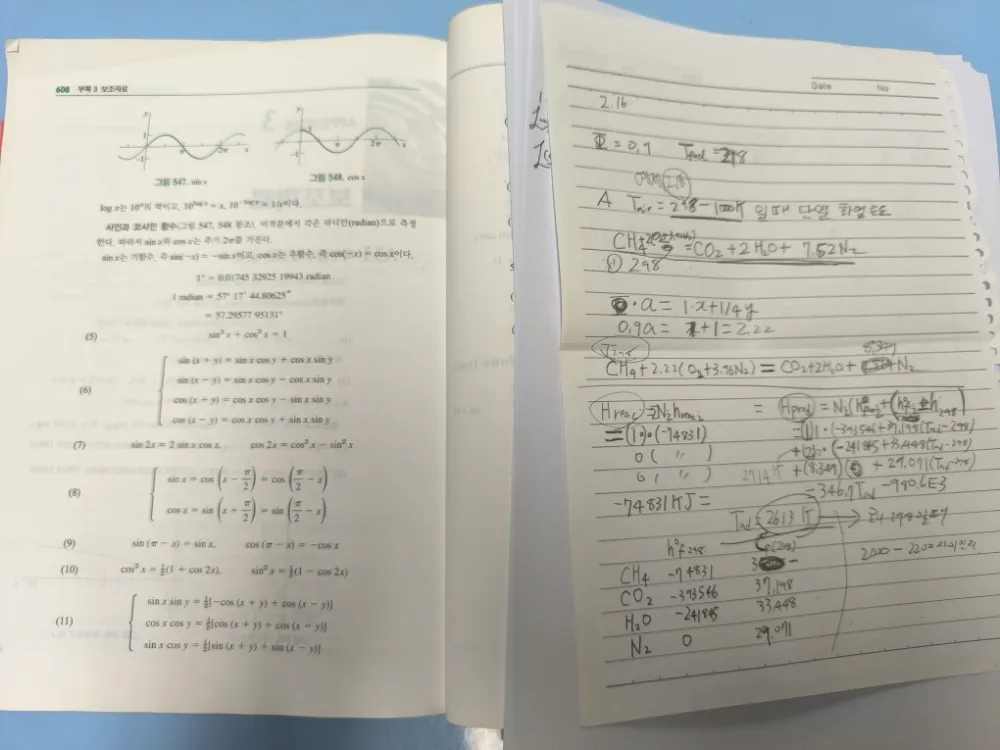 608 부록 3 보조자료
y
1
-1
π
2π
x
y
1
-1
π
2π
x
그림 547. sin x
그림 548. cos x
log x는 10ˣ의 역이고, 10^(log x) = x, 10^(-log x) = 1/x이다.
사인과 코사인 함수(그림 547, 548 참조). 미적분에서 각은 라디안(radian)으로 측정
한다. 따라서 sin x와 cos x는 주기 2π를 가진다.
sin x는 기함수, 즉 sin(-x) = -sin x이고, cos x는 우함수, 즉 cos(-x) = cos x이다.
1° = 0.01745 32925 19943 radian
1 radian = 57° 17′ 44.80625″
= 57.29577 95131°
(5) sin² x + cos² x = 1
(6)
sin (x + y) = sin x cos y + cos x sin y
sin (x - y) = sin x cos y - cos x sin y
cos (x + y) = cos x cos y - sin x sin y
cos (x - y) = cos x cos y + sin x sin y
(7) sin 2x = 2 sin x cos x, cos 2x = cos² x - sin² x
(8)
sin x = cos (x - π/2) = cos (π/2 - x)
cos x = sin (x + π/2) = sin (π/2 - x)
(9) sin (π - x) = sin x, cos (π - x) = -cos x
(10) cos² x = ½(1 + cos 2x), sin² x = ½(1 - cos 2x)
(11)
sin x sin y = ½[-cos (x + y) + cos (x - y)]
cos x cos y = ½[cos (x + y) + cos (x - y)]
sin x cos y = ½[sin (x + y) + sin (x - y)]
Date No
2.16
Φ = 0.9 Tfuel = 298
A Tair = 298 - 1000K 일때 단열 화염온도
CH4 = CO2 + 2H2O + 7.52N2
① 298
· a = 1·x + 1/4 y
0.9a = +1 = 2.22
CH4 + 2.22(O2 + 3.76N2) = CO2 + 2H2O + 8.349 N2
Hreac = = Hprod =
= (1)·(-74831) = (1)·(-393546 + 37.198(Tad-298)
0( 〃 ) +(2)·(-241845 + 33.448(Tad-298)
0( 〃 ) +(8.349)( + 29.071(Tad-298)
-74831 KJ = = 346.7 Tad - 980.6E3
Tad = 2613 K
2000 - 2200
h°f 298
CH4 -74831
CO2 -393546 37.198
H2O -241845 33.448
N2 0 29.071